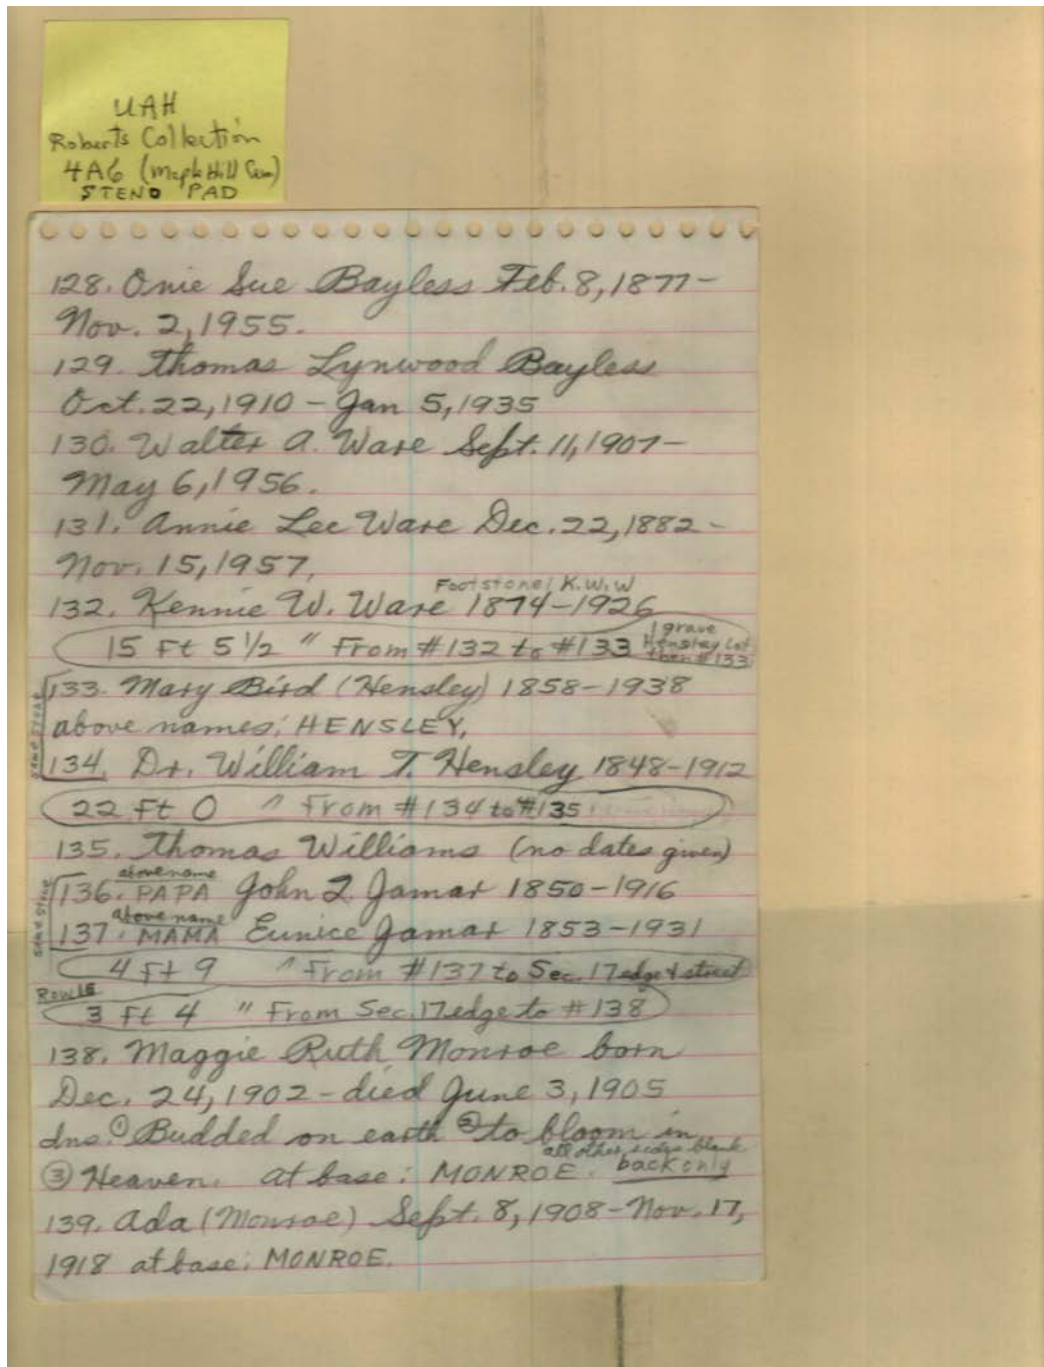 UAH
Roberts Collection
4A6 (Maple Hill Cem)
STENO PAD
128. Onie Sue Bayless Feb. 8, 1877-
Nov. 2, 1955.
129. Thomas Lynwood Bayless
Oct. 22, 1910 - Jan 5, 1935
130. Walter A. Ware Sept. 11, 1907-
May 6, 1956.
131. Annie Lee Ware Dec. 22, 1882-
Nov. 15, 1957,
Footstone: K.W.W
132. Kennie W. Ware 1874-1926
15 Ft 5 1/2 " From #132 to #133 1 grave Hensley Lot then #133
same stone
133. Mary Bird (Hensley) 1858-1938
above names: HENSLEY,
134. Dr. William T. Hensley 1848-1912
22 Ft 0 " From #134 to #135
135. Thomas Williams (no dates given)
same stone
above name
136. PAPA John L. Jamar 1850-1916
above name
137. MAMA Eunice Jamar 1853-1931
4 Ft 9 " From #137 to Sec. 17 edge & street
Row 16
3 Ft 4 " From Sec. 17 edge to #138
138. Maggie Ruth Monroe born
Dec. 24, 1902 - died June 3, 1905
Ins. ① Budded on earth ② to bloom in
all other sides blank
③ Heaven. at base: MONROE. back only
139. Ada (Monroe) Sept. 8, 1908-Nov. 17,
1918 at base: MONROE.